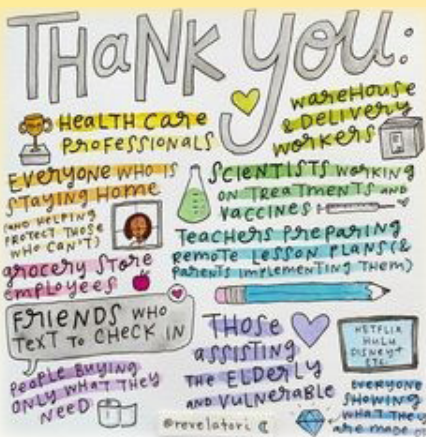 THANK YOU:
HEALTH CARE
PROFESSIONALS
WAREHOUSE
& DELIVERY
WORKERS
EVERYONE WHO IS
STAYING HOME
(AND HELPING
PROTECT THOSE
WHO CAN'T)
SCIENTISTS WORKING
ON TREATMENTS AND
VACCINES
TEACHERS PREPARING
REMOTE LESSON PLANS (&
PARENTS IMPLEMENTING THEM)
GROCERY STORE
EMPLOYEES
FRIENDS WHO
TEXT TO CHECK IN
THOSE
ASSISTING
THE ELDERLY
AND VULNERABLE
NETFLIX
HULU
DISNEY+
ETC.
PEOPLE BUYING
ONLY WHAT THEY
NEED
EVERYONE
SHOWING
WHAT THEY
ARE MADE OF
@revelatori